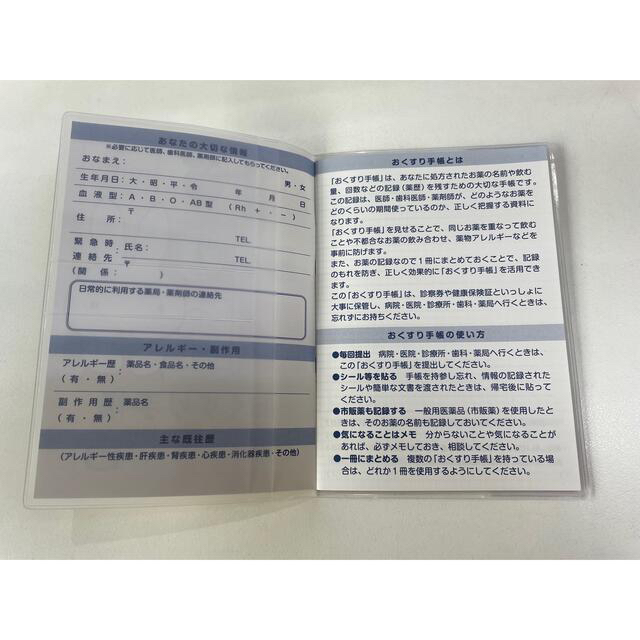 あなたの大切な情報
※必要に応じて医師、歯科医師、薬剤師に記入してもらってください。
おなまえ：
男・女
生年月日：大・昭・平・令　年　月　日
血液型：A・B・O・AB型　（Rh ＋・－）
住　所：〒
TEL
緊急時　氏名：
TEL
連絡先：〒
（関係：　　）
日常的に利用する薬局・薬剤師の連絡先
アレルギー・副作用
アレルギー歴：薬品名・食品名・その他
（有・無）
副作用歴：薬品名
（有・無）
主な既往歴
（アレルギー性疾患・肝疾患・腎疾患・心疾患・消化器疾患・その他）
おくすり手帳とは
「おくすり手帳」は、あなたに処方されたお薬の名前や飲む
量、回数などの記録（薬歴）を残すための大切な手帳です。
この記録は、医師・歯科医師・薬剤師が、どのようなお薬を
どのくらいの期間使っているのか、正しく把握する資料に
なります。
「おくすり手帳」を見せることで、同じお薬を重なって飲む
ことや不都合なお薬の飲み合わせ、薬物アレルギーなどを
事前に防げます。
また、お薬の記録なので1冊にまとめておくことで、記録
のもれを防ぎ、正しく効果的に「おくすり手帳」を活用でき
ます。
この「おくすり手帳」は、診察券や健康保険証といっしょに
大事に保管し、病院・医院・診療所・歯科・薬局へ行くときは、
忘れずにお持ちください。
おくすり手帳の使い方
●毎回提出　病院・医院・診療所・歯科・薬局へ行くときは、
この「おくすり手帳」を提出してください。
●シール等を貼る　手帳を持参し忘れ、情報の記録された
シールや簡単な文書を渡されたときは、帰宅後に貼って
ください。
●市販薬も記録する　一般用医薬品（市販薬）を使用したと
きは、そのお薬の名前も記録しておいてください。
●気になることはメモ　分からないことや気になることが
あれば、必ずメモしておき、相談してください。
●一冊にまとめる　複数の「おくすり手帳」を持っている場
合は、どれか1冊を使用するようにしてください。